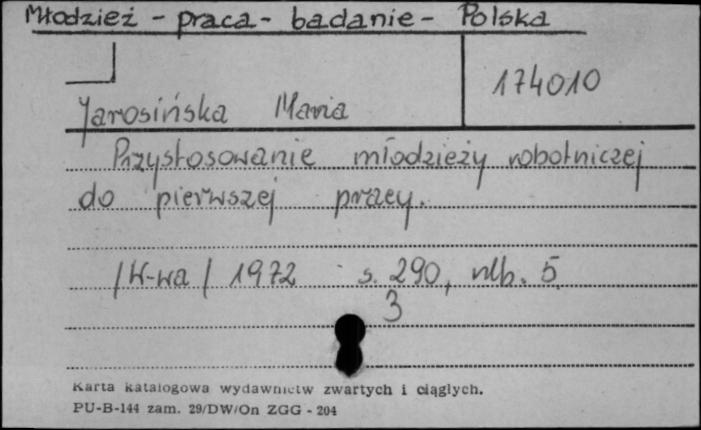 Młodzież - praca - badanie - Polska
174010
Jarosińska Maria
Przystosowanie młodzieży robotniczej
do pierwszej pracy.
/W-wa/ 1972 s. 290, nlb. 5
3
Karta katalogowa wydawnictw zwartych i ciągłych.
PU-B-144 zam. 29/DW/On ZGG - 204